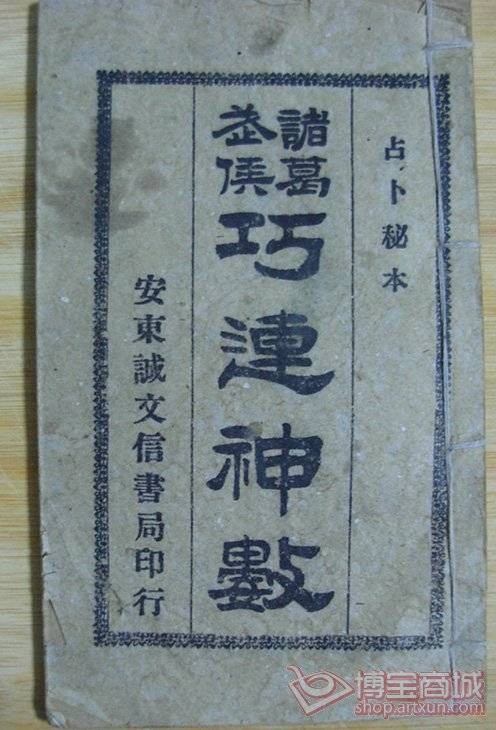 占卜秘本
諸葛
武侯
巧連神數
安東誠文信書局印行
博宝商城
shop.artxun.com